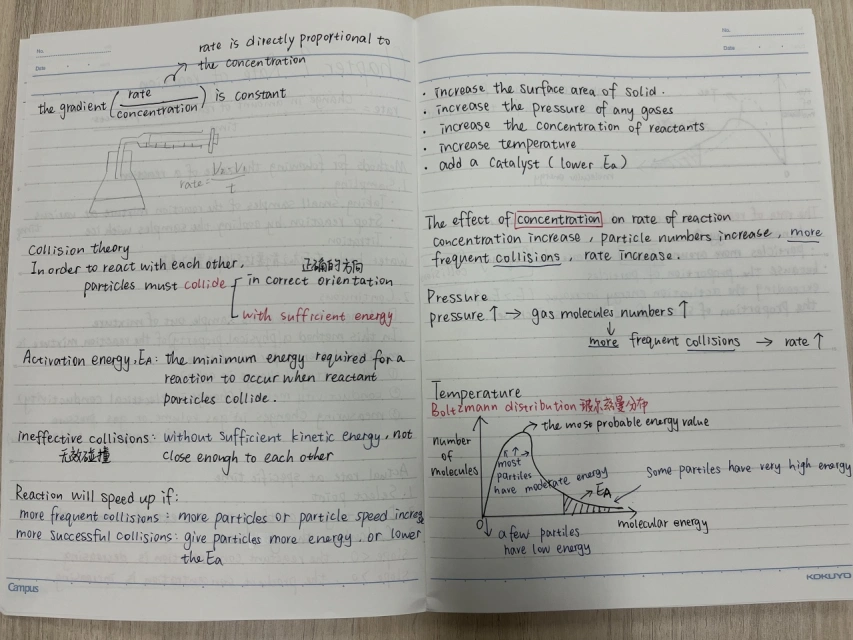 No.
Date
rate is directly proportional to
the concentration
the gradient (rate/concentration) is constant
rate = V₂-V₁/t
Collision theory
In order to react with each other.
正确的方向
particles must collide in correct orientation
with sufficient energy
Activation energy, EA: the minimum energy required for a
reaction to occur when reactant
particles collide.
ineffective collisions: without sufficient kinetic energy, not
无效碰撞 close enough to each other
Reaction will speed up if:
more frequent collisions: more particles or particle speed increase
more successful collisions: give particles more energy, or lower
the Ea
Campus
No.
Date
· increase the surface area of solid.
· increase the pressure of any gases
· increase the concentration of reactants
· increase temperature
· add a catalyst (lower Ea)
The effect of concentration on rate of reaction
concentration increase, particle numbers increase, more
frequent collisions, rate increase.
Pressure
pressure ↑ → gas molecules numbers ↑
↓
more frequent collisions → rate ↑
Temperature
Boltzmann distribution 玻尔兹曼分布
the most probable energy value
number
of
molecules
most
partiles
have moderate energy
Some partiles have very high energy
EA
0
molecular energy
a few partiles
have low energy
KOKUYO